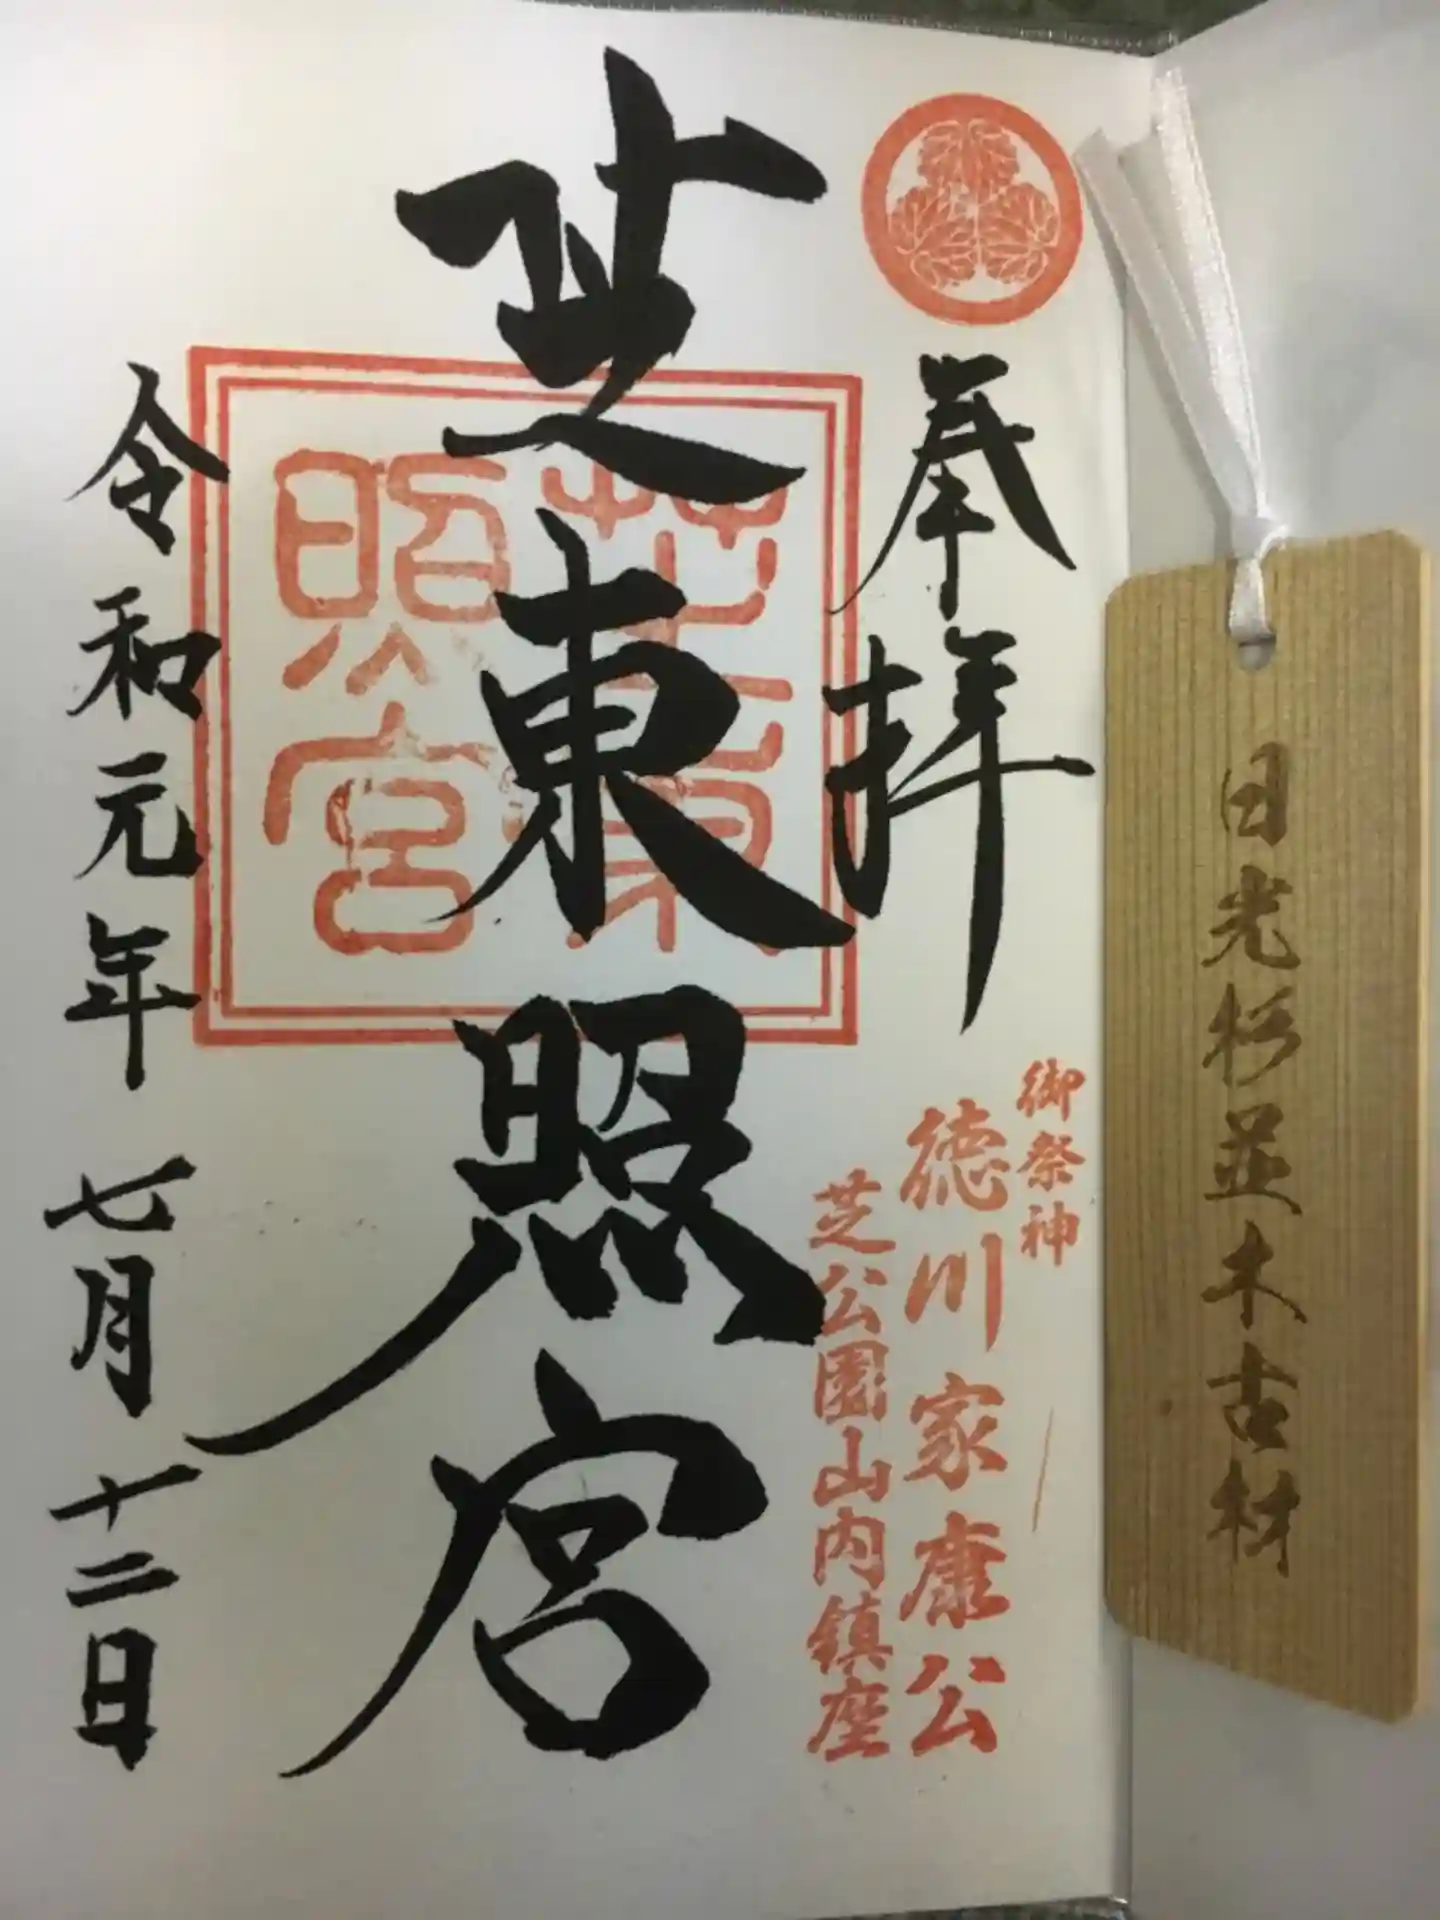 日光杉並木古材
奉拝
御祭神
徳川家康公
芝公園山内鎮座
芝東照宮
芝東
照宮
令和元年七月十二日